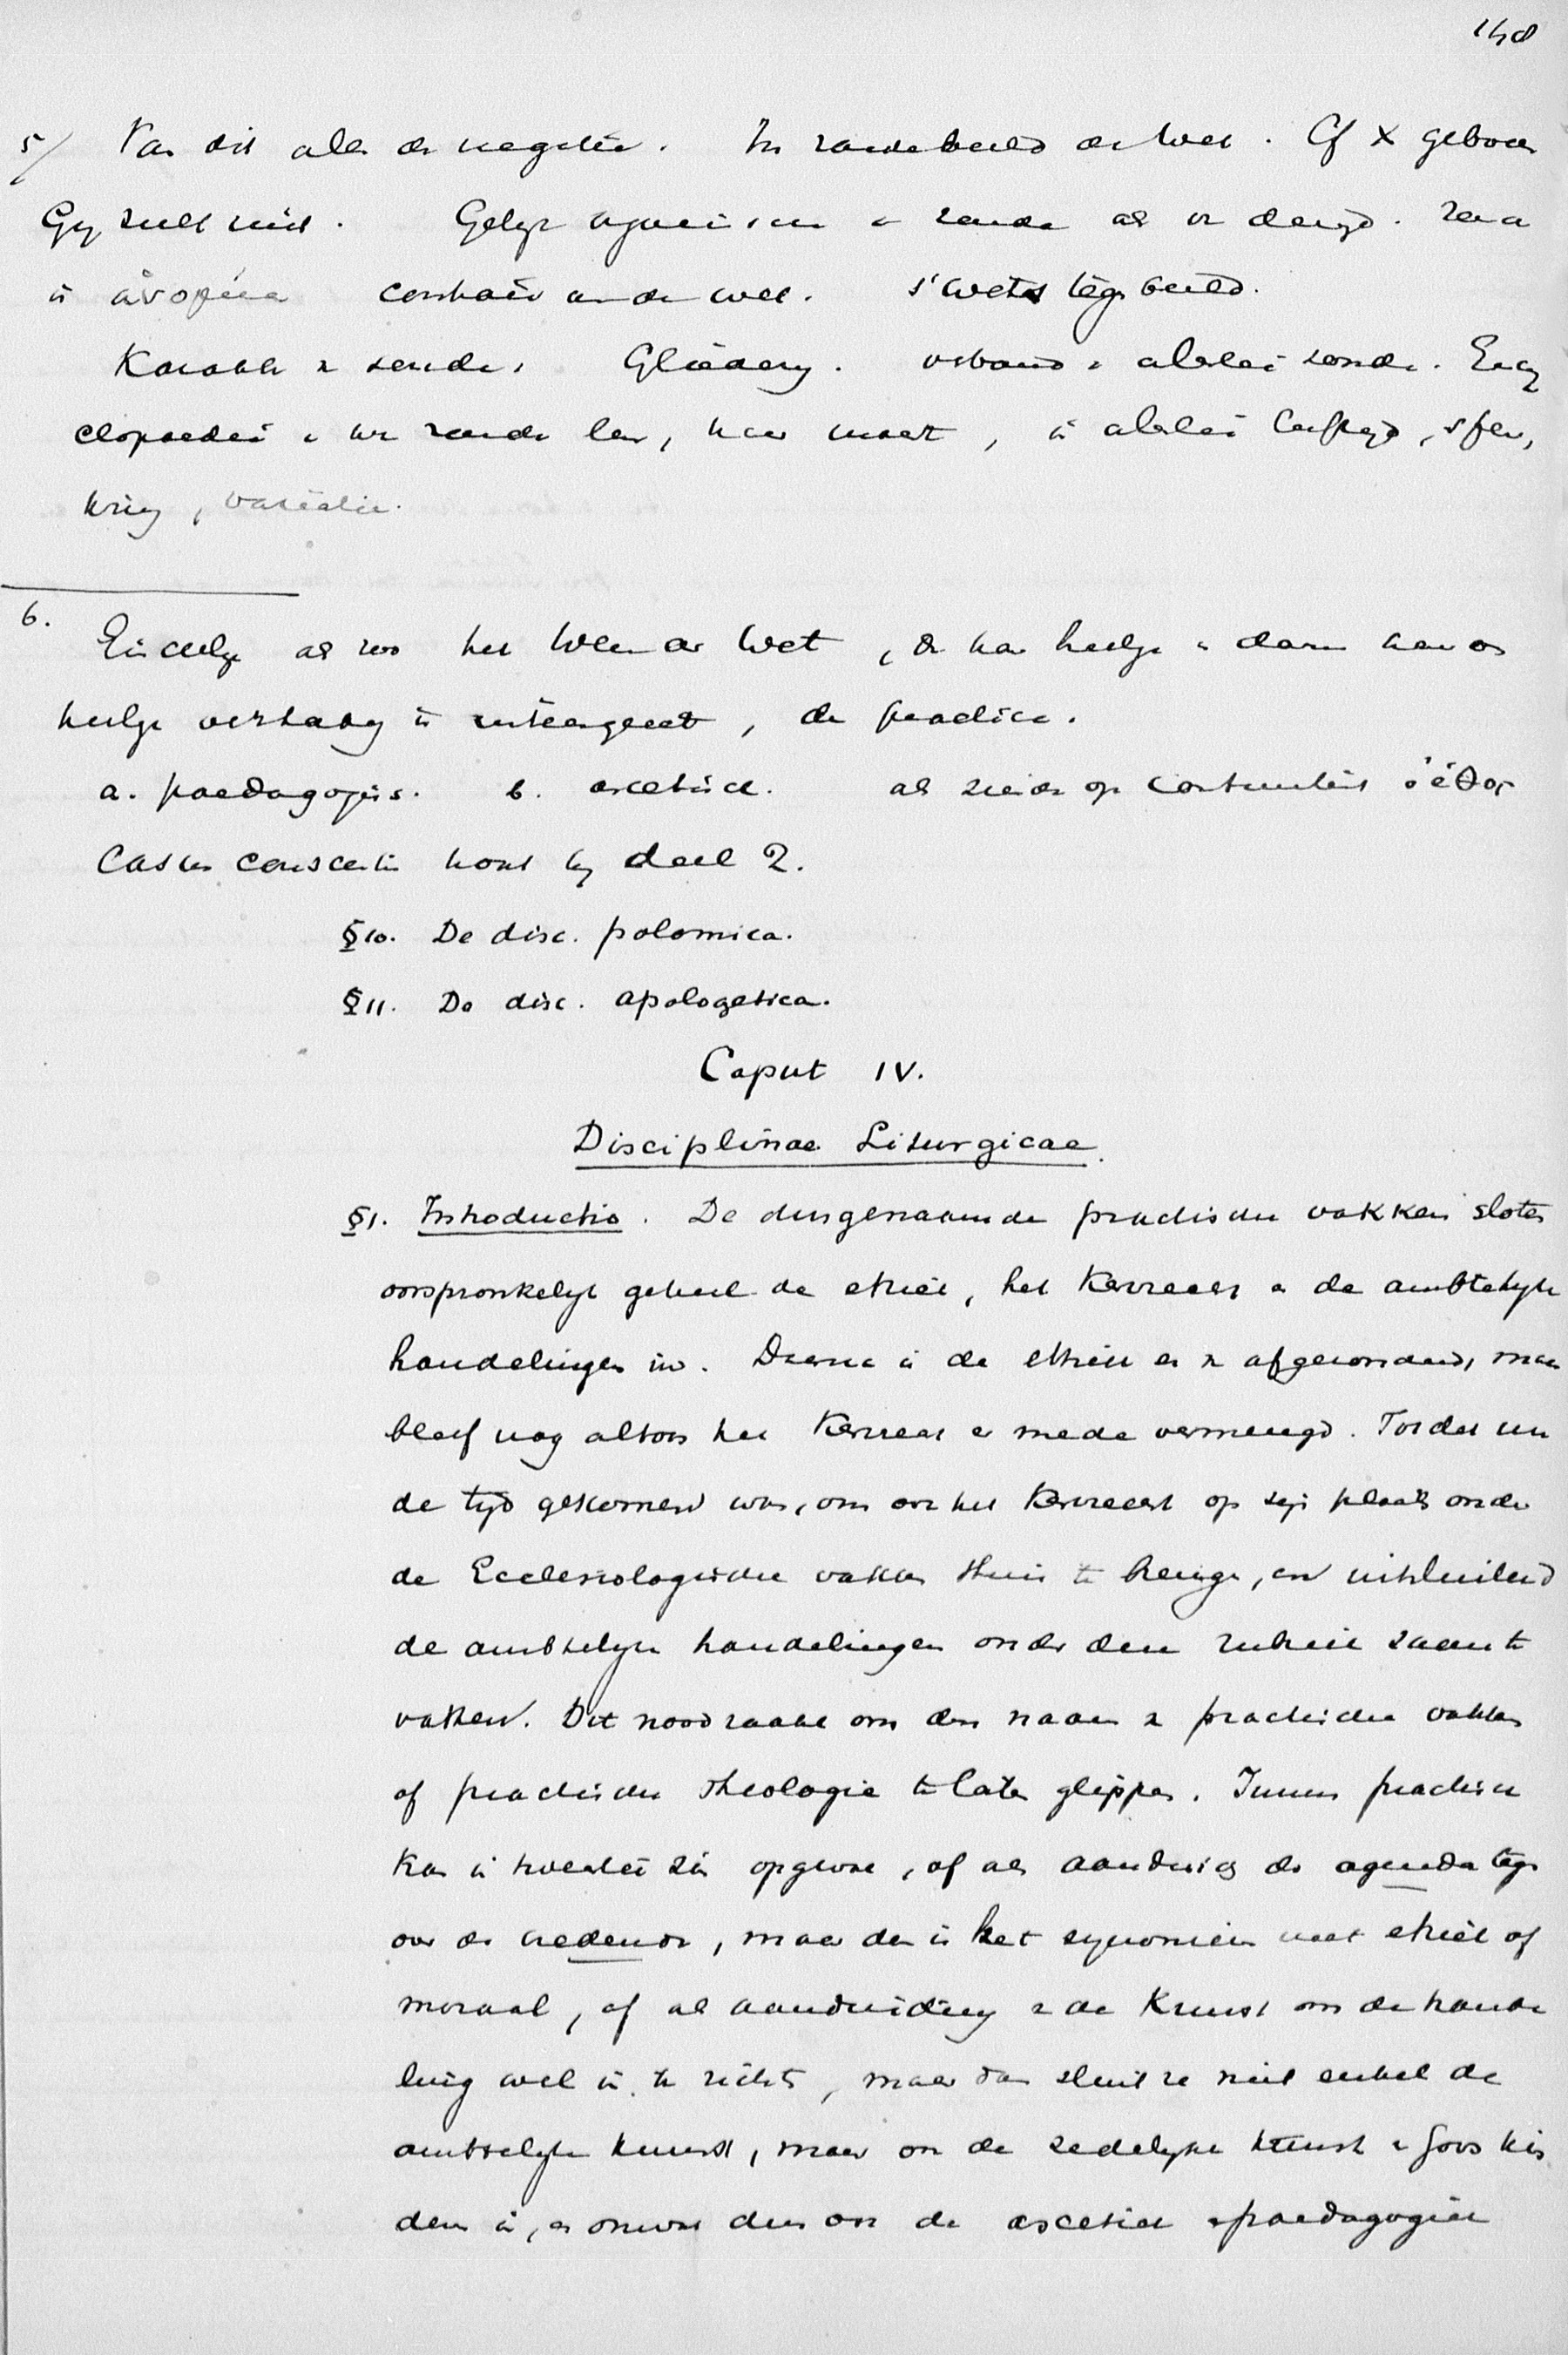 148
5/ Van dit alles de negatie. In zonde beeld der Wet. Cf X geboden
Gij zult niet. Gelijk organisme in zonde als in deugd. Zonde
is ἀνομία contrair aan de wet. 's Wets tegenbeeld.
Karakter v zonde. Gliedering. verband v allerlei zonde. Ency
clopaedie v de zonde leer, haar macht, in allerlei leeftijd, sfeer,
kring, variatie.
6.
Eindelijk als zoo het Wezen der Wet, de haar heilige daarin haar on
heilige verstoring is uiteengezet, de practica.
a. paedagogies. b. ascetica. als ziende op continuiteit ὁ ἔθος
Casus conscientiae komt bij deel 2.
§10. De disc. polemica.
§11. De disc. apologetica.
Caput IV.
Disciplinae Liturgicae.
§1. Introductio. De dusgenaamde practische vakken sloten
oorspronkelijk geheel de ethiek, het Kerkrecht en de ambtelijke
handelingen in. Daarna is de ethiek er v afgezonderd, maar
bleef nog altoos het Kerkrecht er mede vermengd. Totdat nu
de tijd gekomen was, om ook het Kerkrecht op zijn plaats onder
de Ecclesiologische vakken thuis te brengen, en uitsluitend
de ambtelijke handelingen onder deze rubriek saam te
vatten. Dit noodzaakt om den naam v practische vakken
of practische Theologie te laten glippen. Immers practisch
kan in tweeërlei zin opgevat, of als aanduiding der agenda tegen
over de credenda, maar dan is het synoniem met ethiek of
moraal, of als aanduiding v de Kunst om de hande
ling wel in te richten, maar dan sluit ze niet enkel de
ambtelijke kunst, maar ook de zedelijke kunst v Gods kin
deren in, en omvat dus ook de ascetiek en paedagogiek